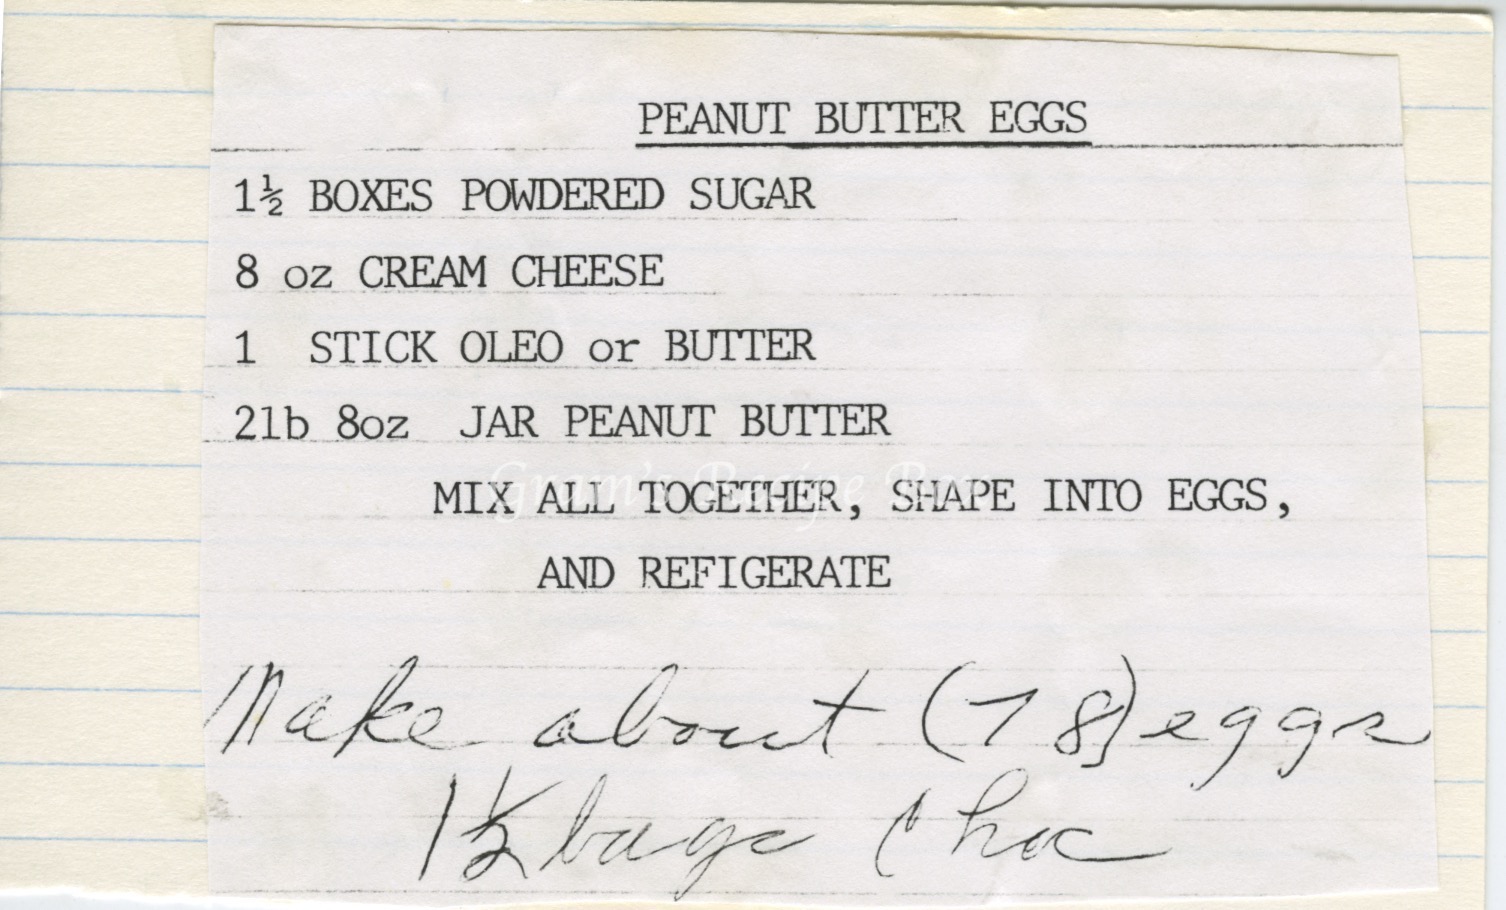 PEANUT BUTTER EGGS
1½ BOXES POWDERED SUGAR
8 oz CREAM CHEESE
1 STICK OLEO or BUTTER
2lb 8oz JAR PEANUT BUTTER
Gram's Recipe Box
MIX ALL TOGETHER, SHAPE INTO EGGS,
AND REFIGERATE
Make about (78) eggs
1½ bags choc